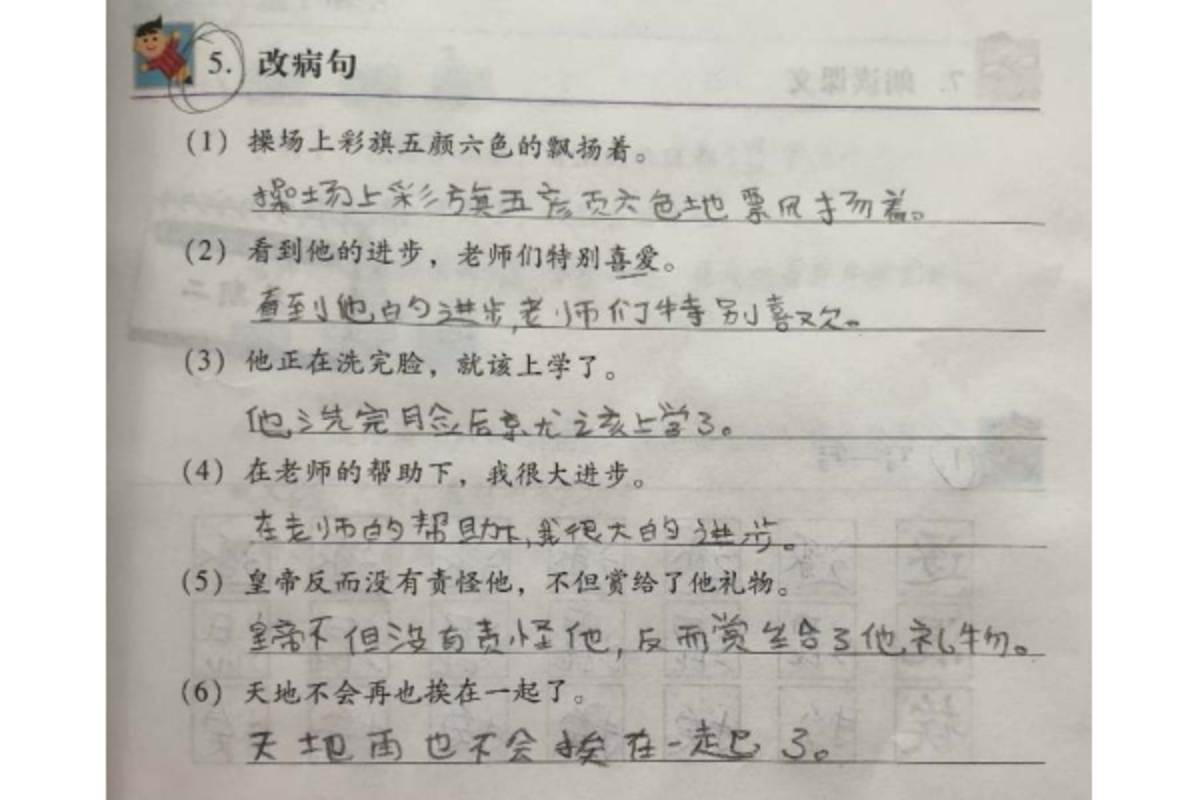 5. 改病句
(1) 操场上彩旗五颜六色的飘扬着。
操场上彩旗五颜六色地飘扬着。
(2) 看到他的进步，老师们特别喜爱。
看到他的进步,老师们特别喜欢。
(3) 他正在洗完脸，就该上学了。
他洗完脸后就该上学了。
(4) 在老师的帮助下，我很大进步。
在老师的帮助下,我很大的进步。
(5) 皇帝反而没有责怪他，不但赏给了他礼物。
皇帝不但没有责怪他,反而赏给了他礼物。
(6) 天地不会再也挨在一起了。
天地再也不会挨在一起了。